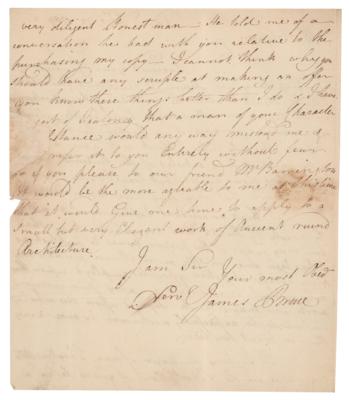 very diligent Honest man - He told me of a
conversation he had with you relative to the
purchasing my copy - I cannot think why you
should have any scruple at making an offer
you know these things better than I do & I have
not a Jealousy that a man of your Character
& would any way me I
refer it to you Entirely without fear
or if you please to our friend Mr Barrington
It would be the more agreable to me at this time
that it would Give me time to apply to a
Small but very Elegant work of Ancient ruind
Architecture.
I am Sir Your most Obed
Serv James Bruce